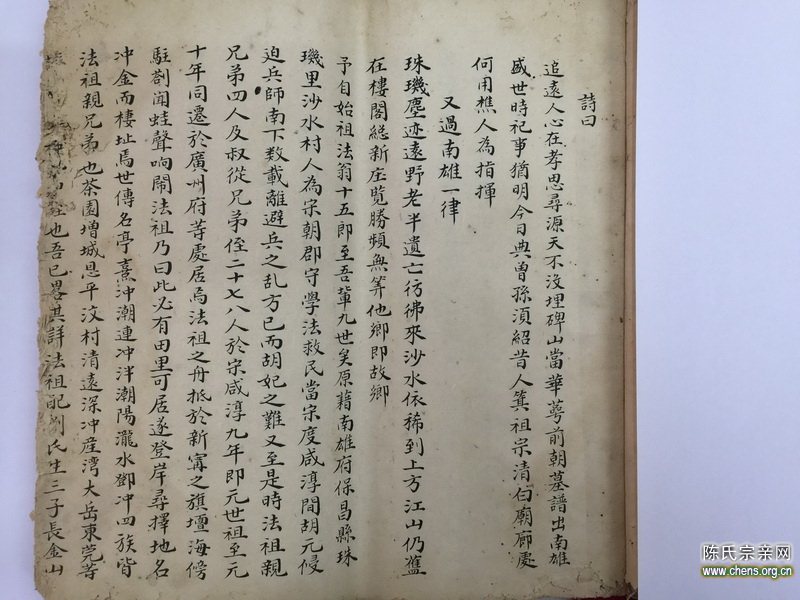 詩曰
追遠人心在孝思尋源天不没埋碑山當華萼前朝墓譜出南雄
盛世時祀事猶明今日典曾孫須紹昔人箕祖宗清白廟廊處
何用樵人為指揮
又過南雄一律
珠璣塵迹遠野老半遺亡彷彿來沙水依稀到上方江山仍舊
在樓閣総新庄覧勝頻無筭他鄉即故鄉
予自始祖法翁十五郎至吾輩九世矣原籍南雄府保昌縣珠
璣里沙水村人為宋朝郡守學法救民當宋度咸淳間胡元侵
迫兵師南下数載離避兵之乱方已而胡妃之難又至是時法祖親
兄弟四人及叔從兄弟侄二十七八人於宋咸淳九年即元世祖至元
十年同遷於廣州府等處居焉法祖之舟抵於新寧之旗壇海傍
駐劄聞蛙聲响鬧法祖乃曰此必有田里可居遂登岸尋擇地名
冲金而棲址焉世傳名亭喜冲潮連冲泮潮陽瀧水鄧冲四族皆
法祖親兄弟也茶園增城恩平汶村清遠深冲產湾大岳東莞等
也吾已畧其詳法祖配劉氏生三子長金山
陈氏宗亲网
www.chens.org.cn